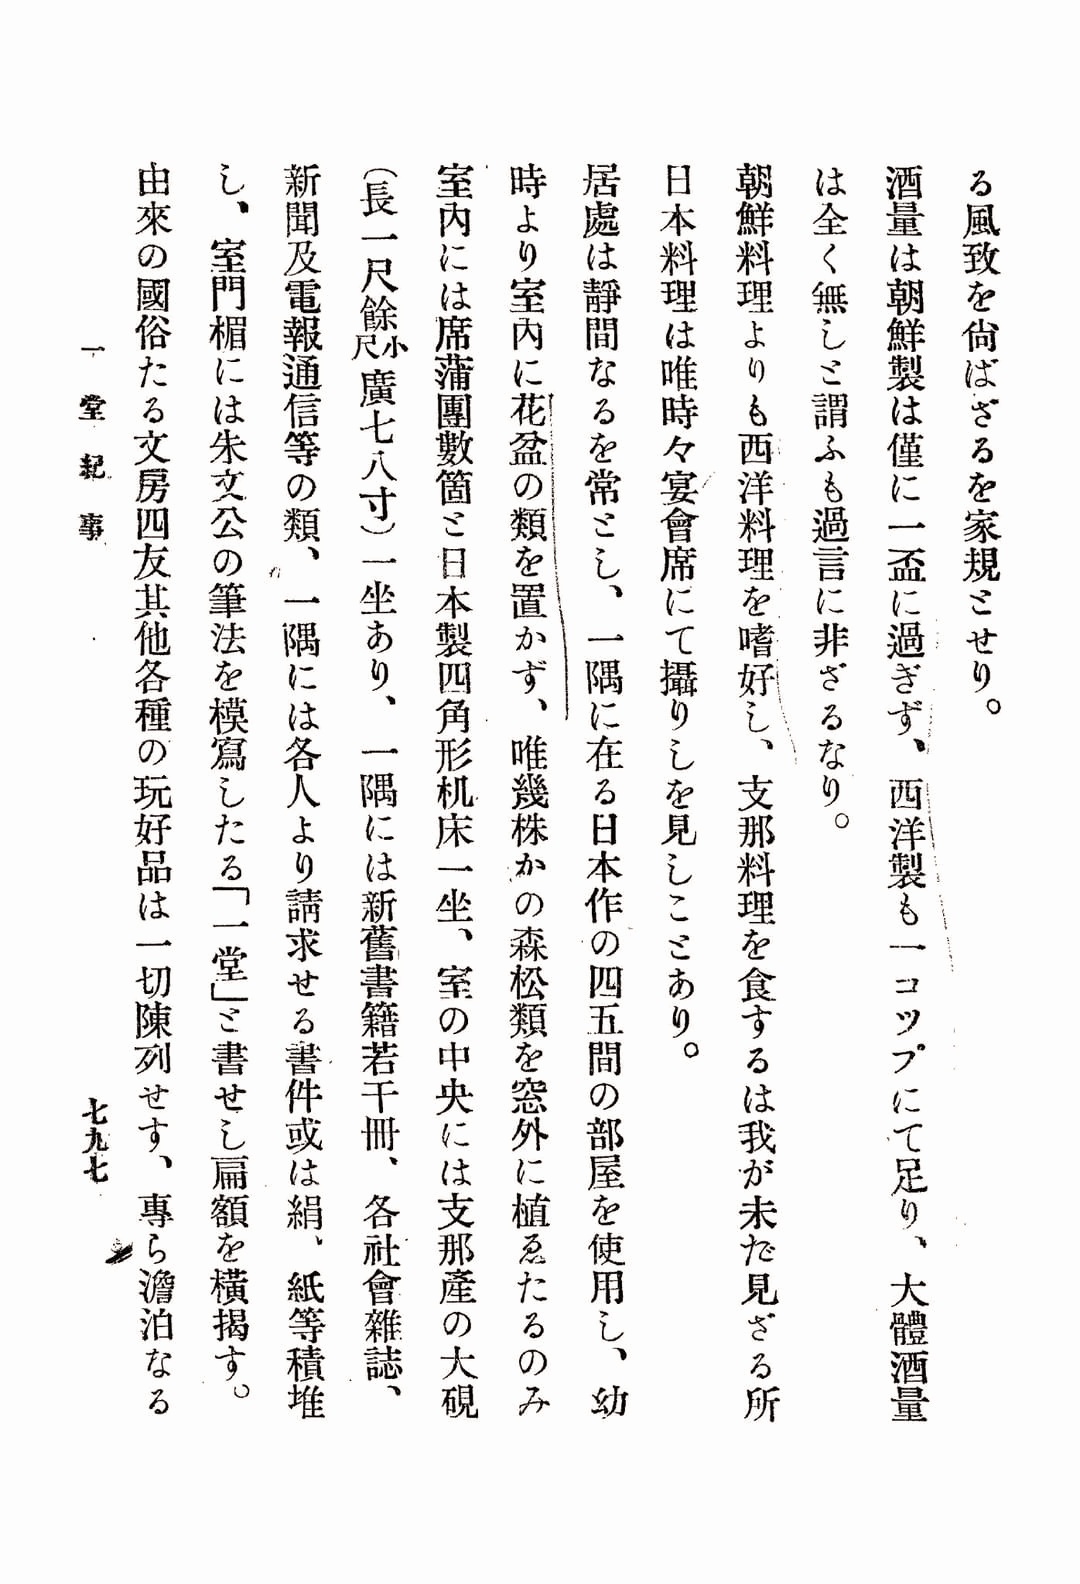 る風致を尙ばざるを家規とせり。
酒量は朝鮮製は僅に一盃に過ぎず、西洋製も一コツプにて足り、大體酒量
は全く無しと謂ふも過言に非ざるなり。
朝鮮料理よりも西洋料理を嗜好し、支那料理を食するは我が未だ見ざる所
日本料理は唯時々宴會席にて攝りしを見しことあり。
居處は靜間なるを常とし、一隅に在る日本作の四五間の部屋を使用し、幼
時より室內に花盆の類を置かず、唯幾株かの森松類を窓外に植ゑたるのみ
室內には席蒲團數箇と日本製四角形机床一坐、室の中央には支那產の大硯
(長一尺餘小尺廣七八寸)一坐あり、一隅には新舊書籍若干冊、各社會雜誌、
新聞及電報通信等の類、一隅には各人より請求せる書件或は絹、紙等積堆
し、室門楣には朱文公の筆法を模寫したる「一堂」と書せし扁額を橫揭す。
由來の國俗たる文房四友其他各種の玩好品は一切陳列せす、專ら澹泊なる
一堂紀事
七九七